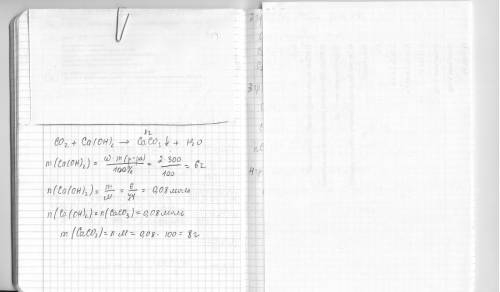 8г
CO₂ + Ca(OH)₂ → CaCO₃↓ + H₂O
m(Ca(OH)₂) = ω·m(р-ра)/100% = 2·300/100 = 6г
n(Ca(OH)₂) = m/M = 6/74 = 0,08 моль
n(Ca(OH)₂) = n(CaCO₃) = 0,08 моль
m(CaCO₃) = n·M = 0,08·100 = 8г